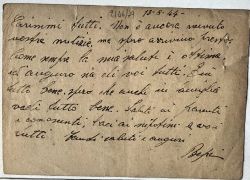 12-5-44
Carissimi tutti. Non ho ancora ricevuto
vostre notizie, ma spero arrivino presto.
Come sempre la mia salute è ottima
ed auguro sia di voi tutti. Qui
tutto bene. spero che anche in famiglia
vada tutto bene. Saluti ai parenti
e conoscenti, baci ai nipotini e a voi
tutti
Tanti saluti e auguri